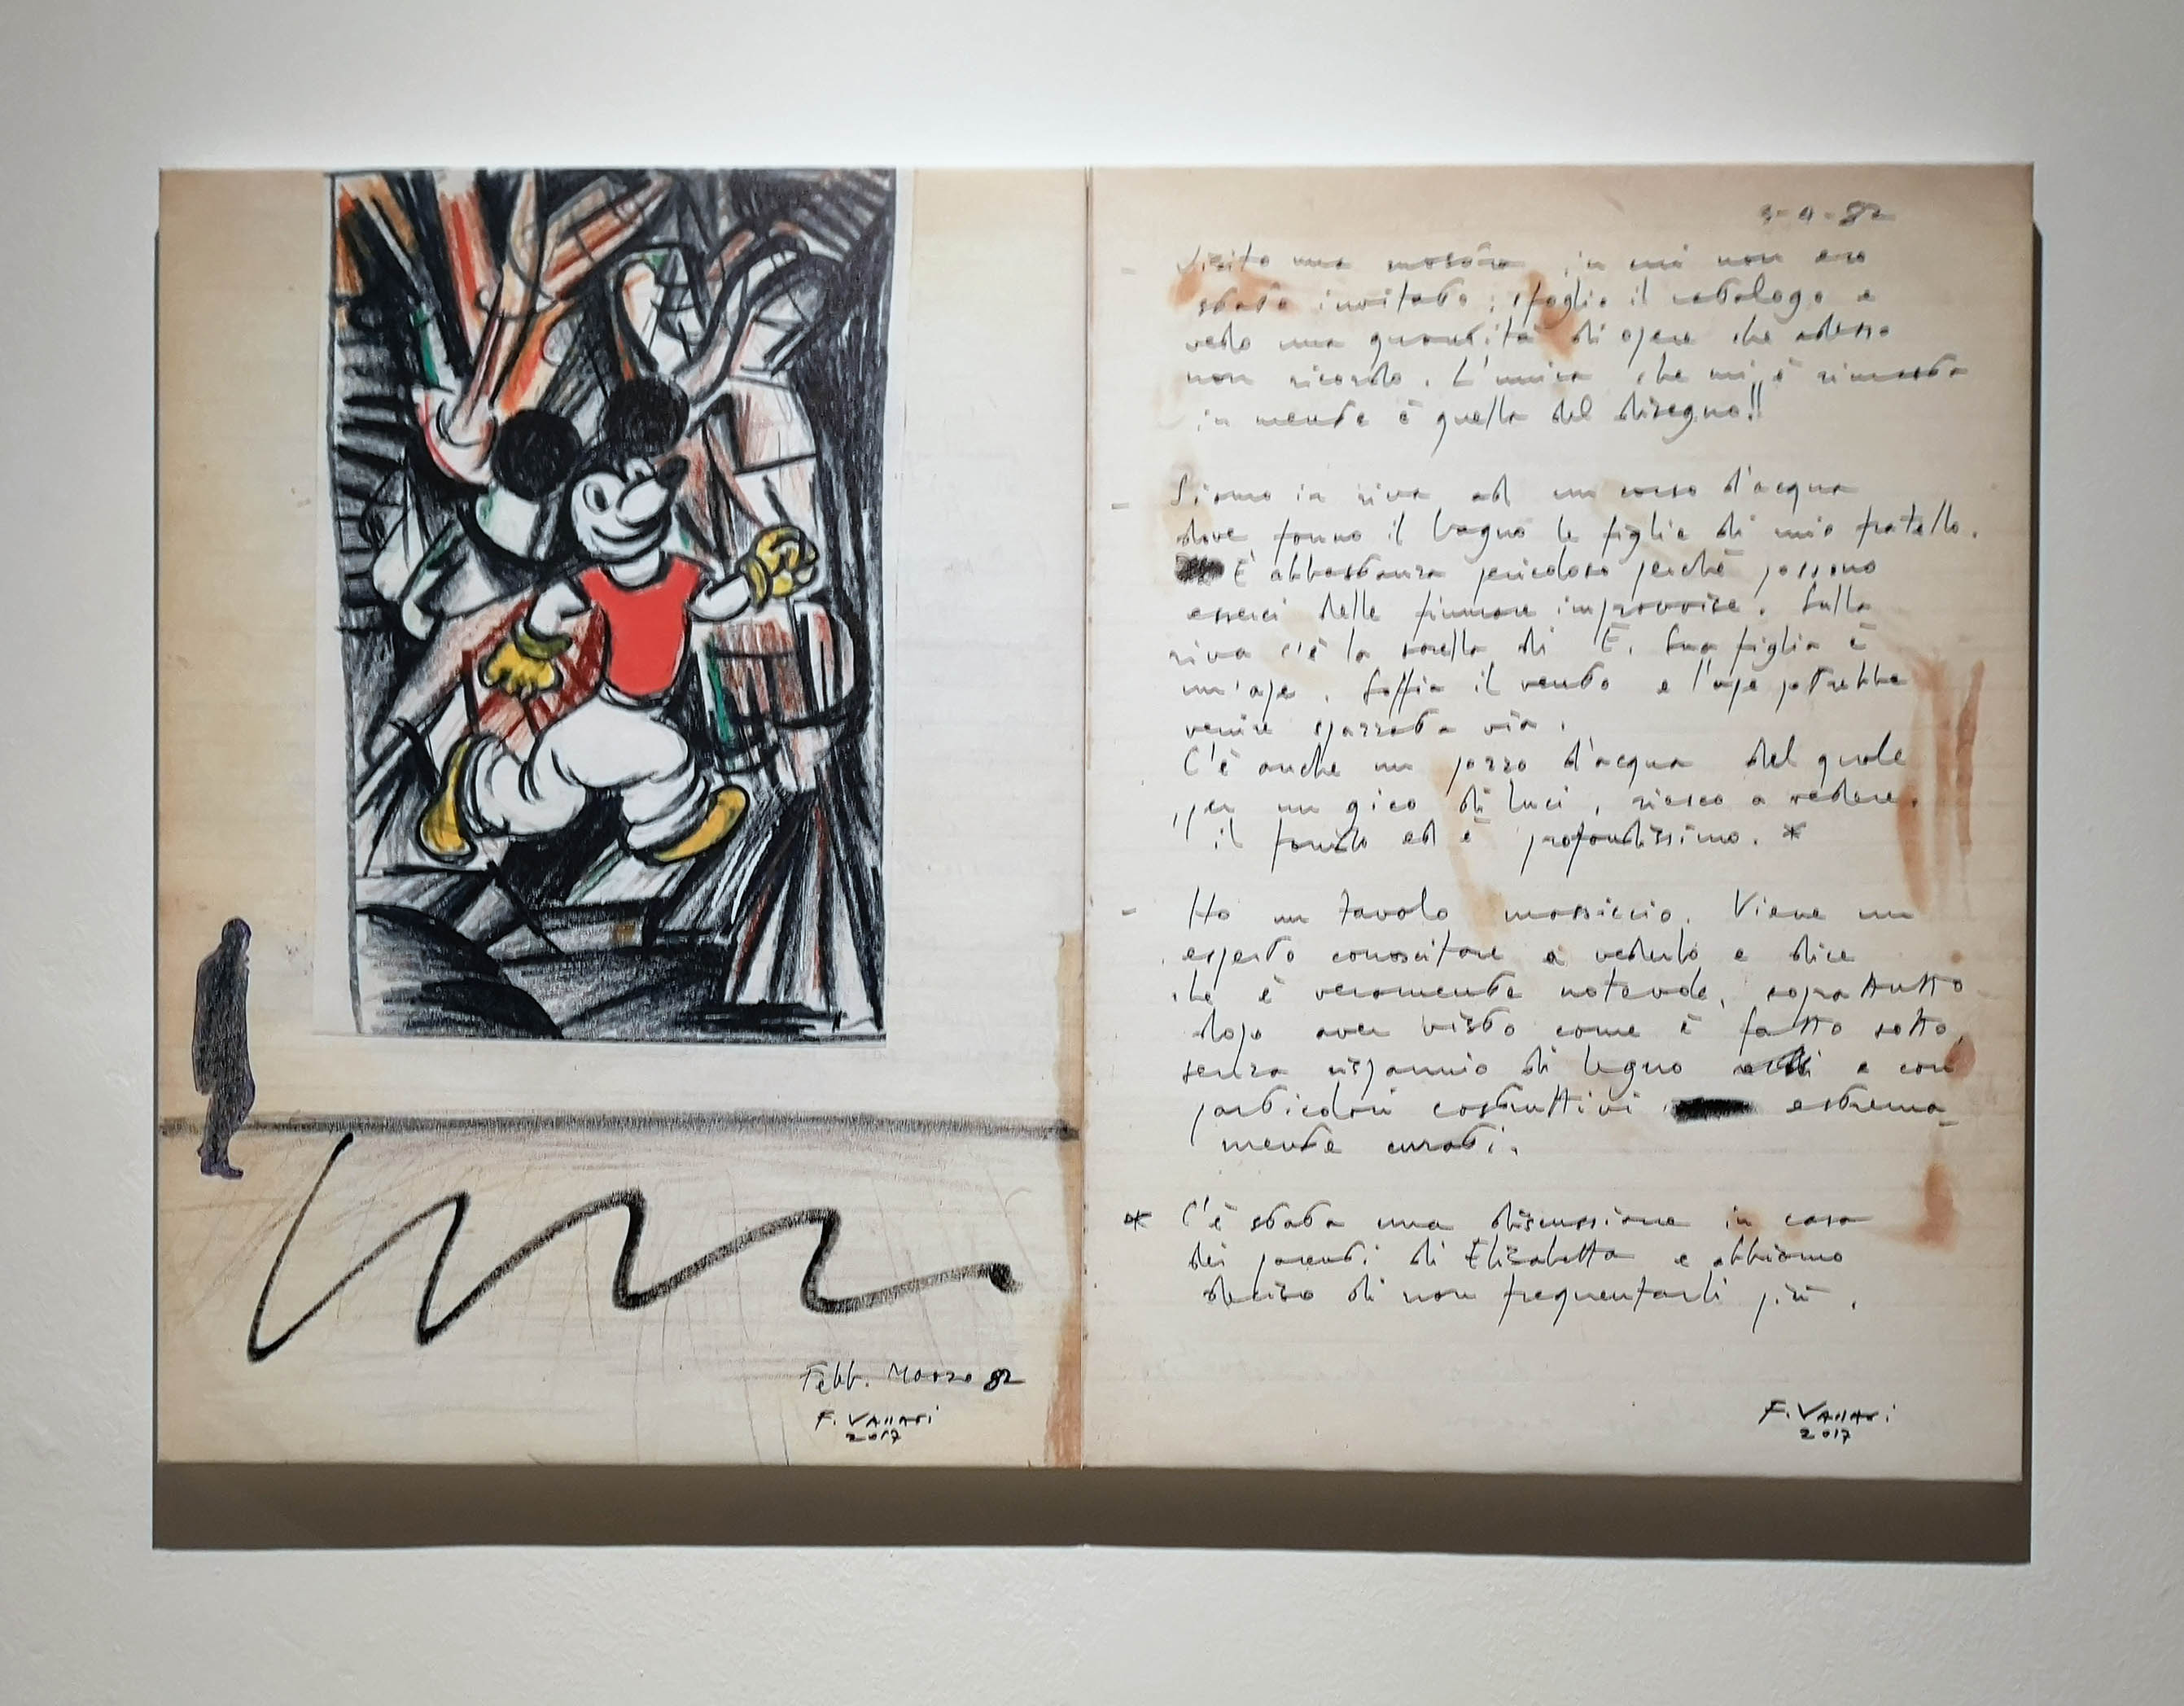 Febb. Marzo 82
F. Vallari
2017
3-4-82
- Visito una mostra in cui non ero
stato invitato; sfoglio il catalogo e
vedo una quantità di opere che adesso
non ricordo. L'unica che mi è rimasta
in mente è quella del disegno!!
- Siamo in riva ad un corso d'acqua
dove fanno il bagno le figlie di mio fratello.
E' abbastanza pericoloso perchè possono
esserci delle fiumare improvvise. Sulla
riva c'è la sorella di E. Sua figlia è
un'ape. Soffia il vento e l'ape potrebbe
venire spazzata via.
C'è anche un pozzo d'acqua del quale
per un gico di luci, riesco a vedere
il fondo ed è profondissimo. *
- Ho un tavolo massiccio. Viene un
esperto conoscitore a vederlo e dice
che è veramente notevole, soprattutto
dopo aver visto come è fatto sotto,
senza risparmio di legno e con
particolari costruttivi estrema-
mente curati.
* C'è stata una discussione in casa
dei parenti di Elisabetta e abbiamo
deciso di non frequentarli più.
F. Vallari
2017